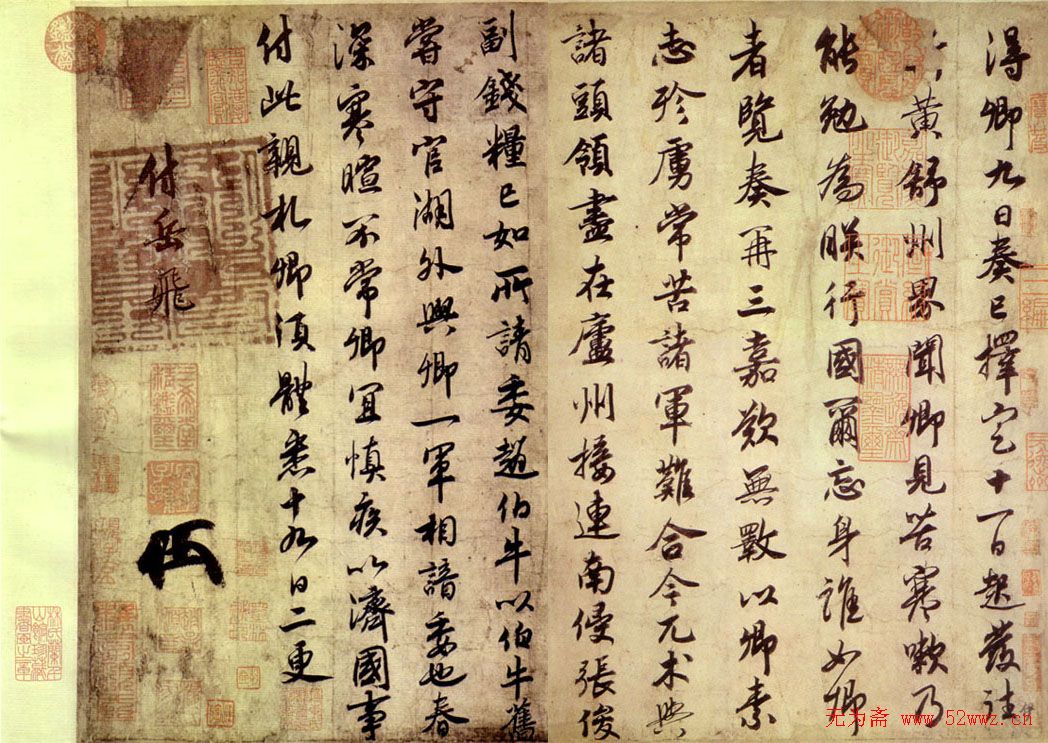 得卿九日奏已擇定十一日起發往
黄舒州界聞卿見苦寒嗽乃
能勉為朕行國爾忘身誰如卿
者覽奏再三嘉歎無斁以卿素
志殄虜常苦諸軍難合今兀术與
諸頭領盡在廬州接連南侵張俊
副錢糧已如所請委趙伯牛以伯牛舊
嘗守官湖外與卿一軍相諳委也春
深寒暄不常卿宜慎疾以濟國事
付此親札卿須體悉十九日二更
付岳飛
无为斋 www.52wwz.cn